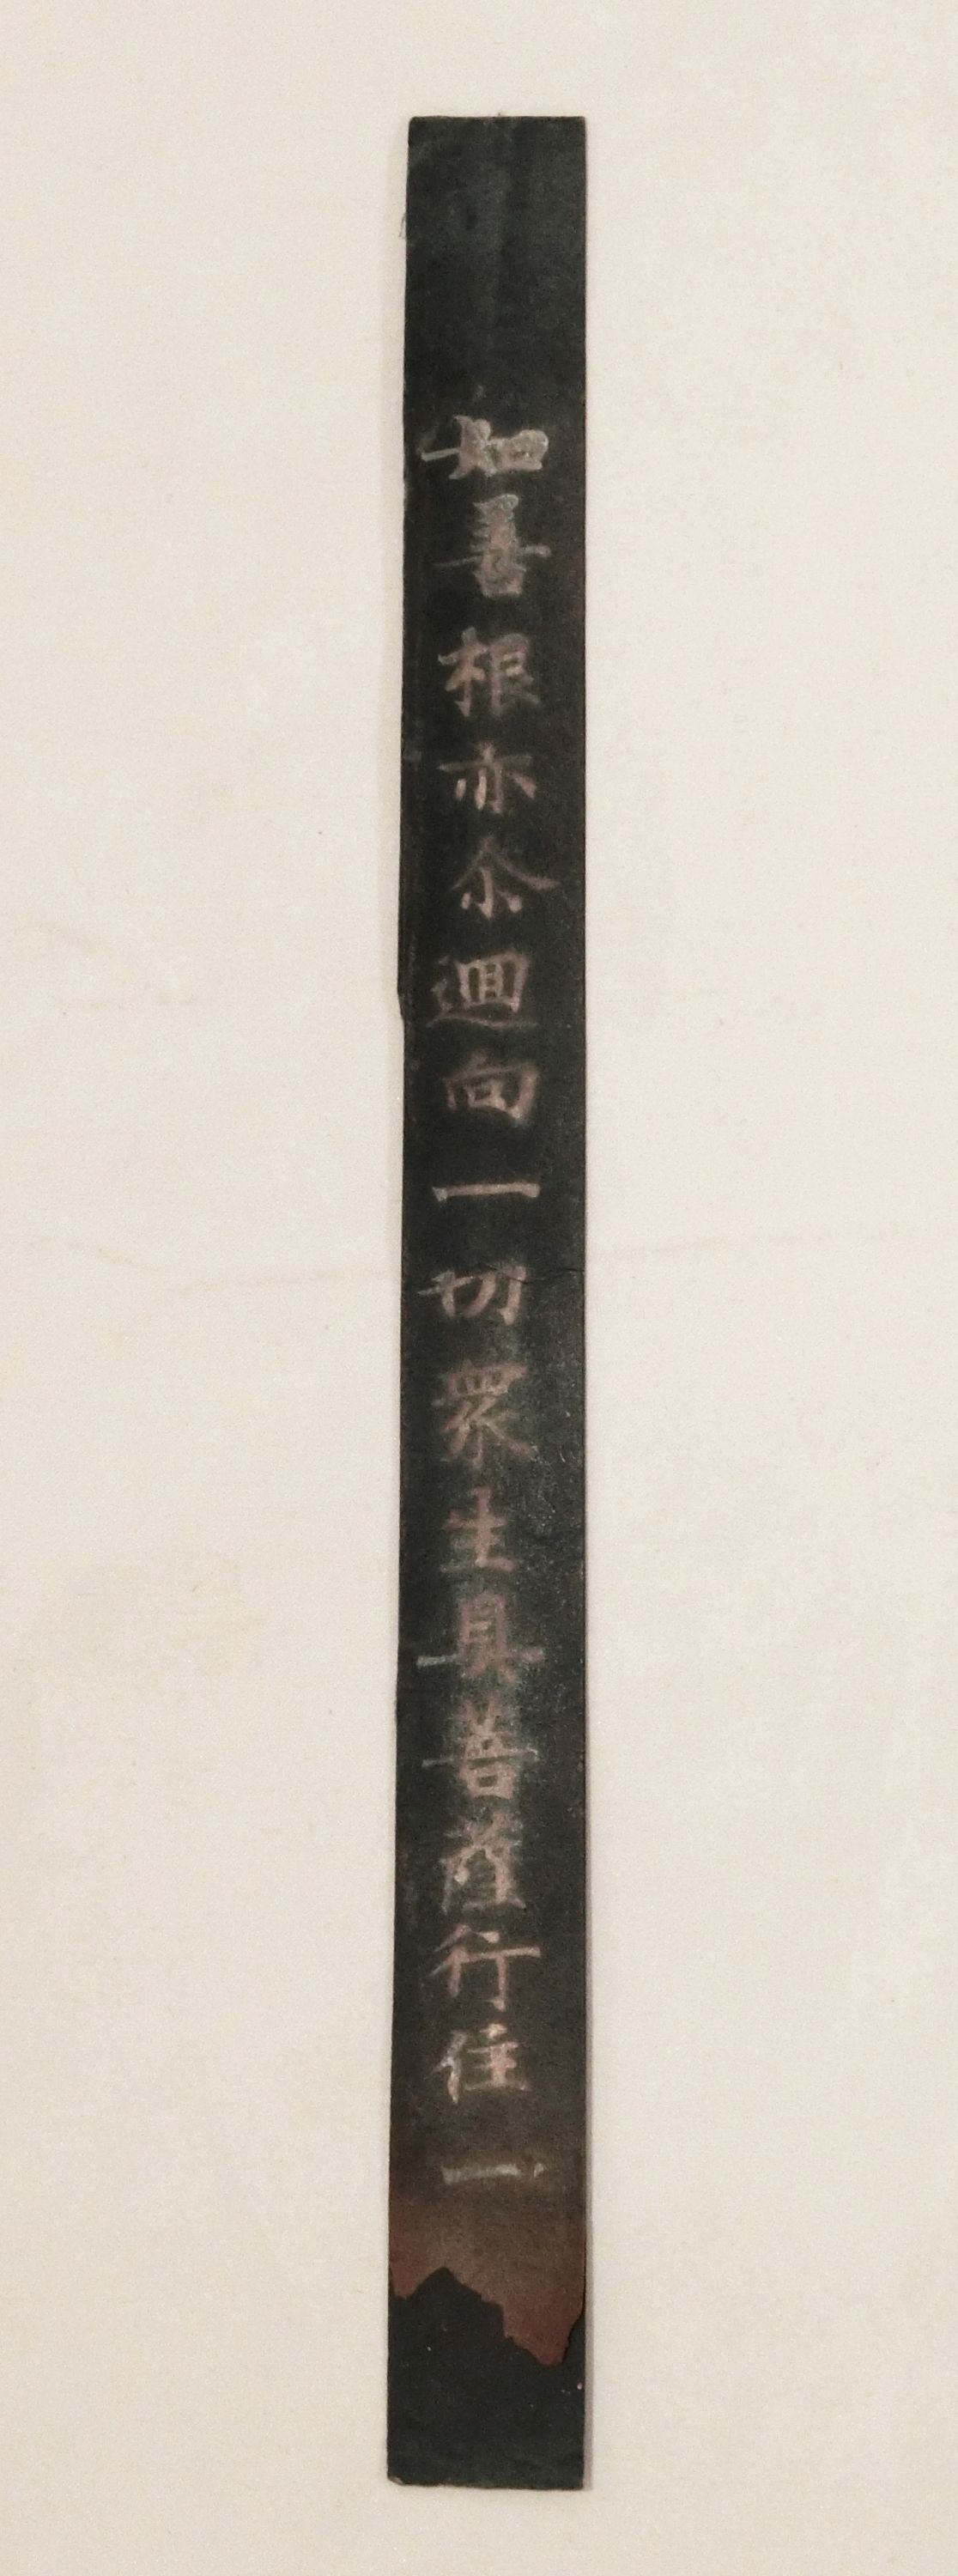 如善根亦尒迴向一切衆生具菩薩行住一